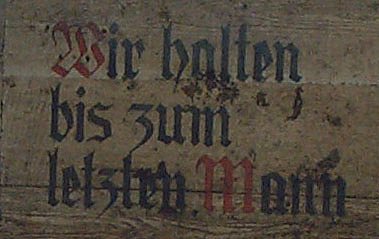 Wir halten
bis zum
letzten Mann